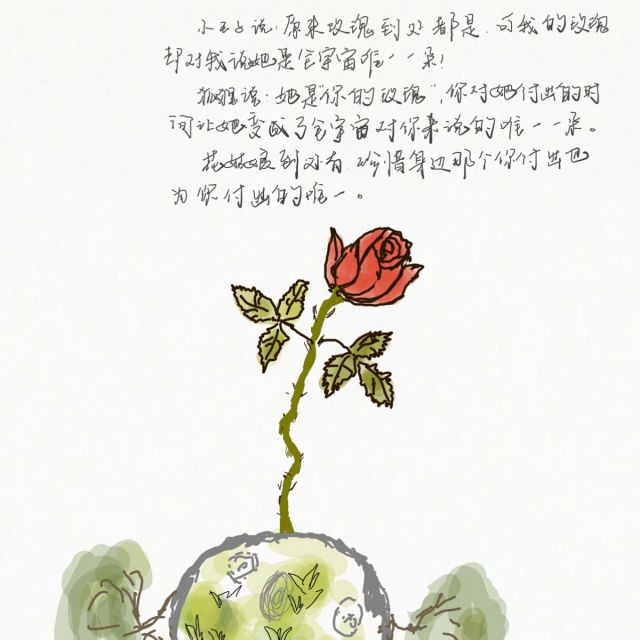 小王子说:原来玫瑰到处都是.可我的玫瑰
却对我说她是全宇宙唯一一朵!
狐狸说:她是你的玫瑰",你对她付出的时
间让她变成了全宇宙对你来说的唯一一朵。
花故娘到处有.珍惜身边那个你付出也
为你付出的唯一。